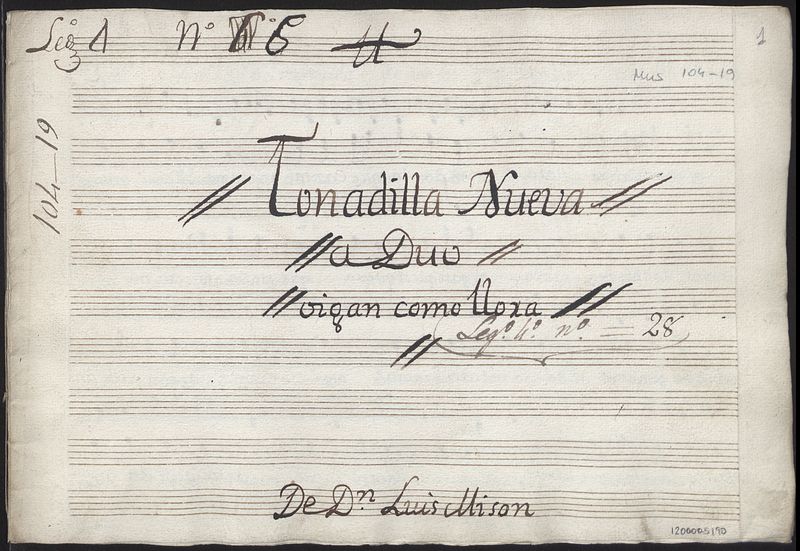 Leg.º 1 Nº 6
1
Mus 104-19
104-19
Tonadilla Nueva
a Duo
oigan como llora
Leg.º 4.º nº. = 28
De D.n Luis Mison
1200005190